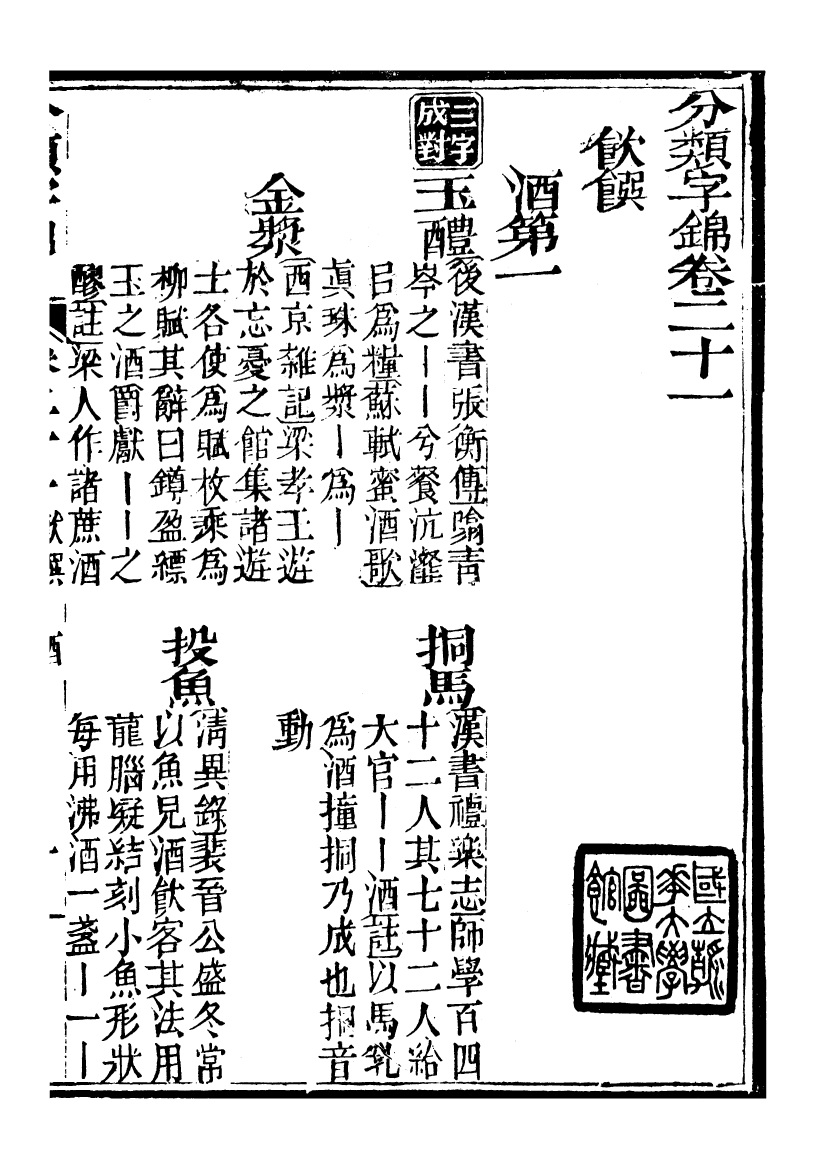 分類字錦卷二十一
飲饌
酒第一
三字成對
玉醴
後漢書張衡傳噏青
岑之丨丨兮餐沆瀣
㠯爲糧蘇軾蜜酒歌
真珠爲漿丨爲丨
挏馬
漢書禮樂志師學百四
十二人其七十二人給
大官丨丨酒註以馬乳
爲酒撞挏乃成也挏音
動
金漿
西京雜記梁孝王遊
於忘憂之館集諸遊
士各使爲賦枚乘爲
柳賦其辭曰鐏盈縹
玉之酒爵獻丨丨之
醪註梁人作諸蔗酒
投魚
清異錄裴晉公盛冬常
以魚兒酒飲客其法用
龍腦凝結刻小魚形狀
每用沸酒一盞丨一丨
國立
華大學
圖書
館藏